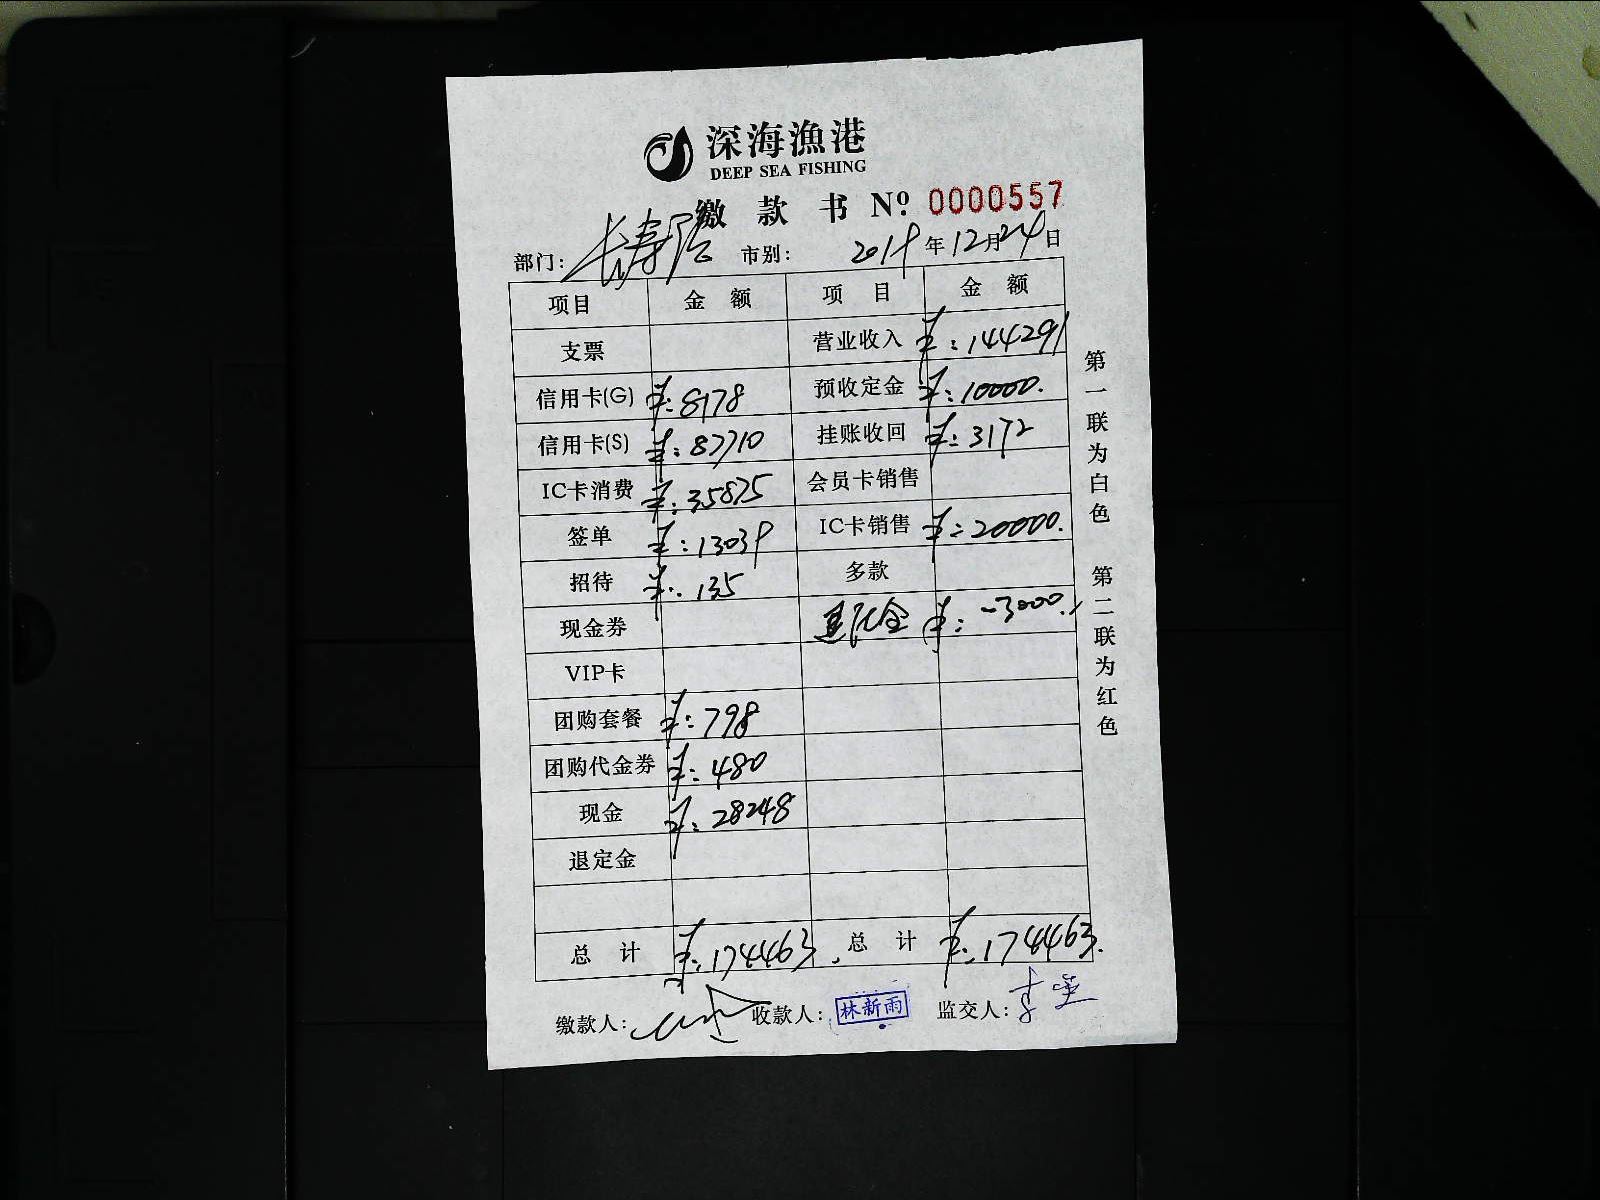 深海漁港
DEEP SEA FISHING
缴款书 Nº. 0000557
部门: 长寿路 市别: 2019年12月24日
项目 金额 项目 金额
支票 营业收入 ¥:144291
信用卡(G) ¥:8178 预收定金 ¥:10000.
信用卡(S) ¥:87710 挂账收回 ¥:3172
IC卡消费 ¥:35875 会员卡销售
签单 ¥:13039 IC卡销售 ¥:20000.
招待 ¥:135 多款
现金券 ¥:-3000.
VIP卡
团购套餐 ¥:798
团购代金券 ¥:480
现金 ¥:28248
退定金
总计 ¥:174463. 总计 ¥:174463.
缴款人: 收款人: 林新雨 监交人:
第一联为白色 第二联为红色